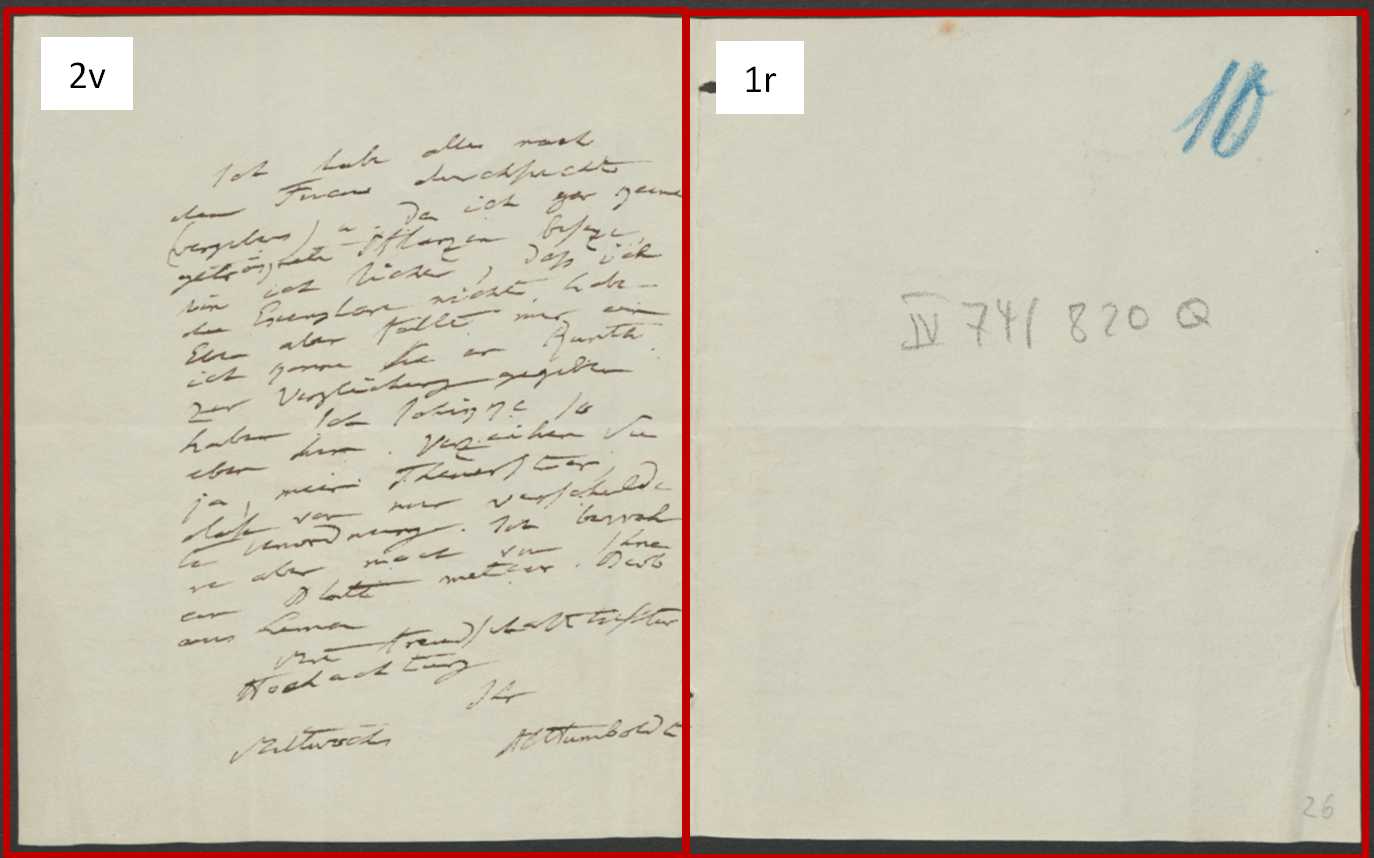 2v
Ich habe alles nach
dem Fucus durchsucht
(vergebens) u. Da ich gar keine
getrocknete Pflanzen besitze,
bin ich sicher, daß ich
die Exemplare nicht habe
Eben aber fällt mir ein
ich könne sie an Kunth
zur Vergleichung gegeben
haben Ich schicke so
eben hin. Verzeihen Sie
ja, mein Theuerster
diese von mir verschulde
te Unordnung. Ich bewah
re aber noch von Ihne
ein Blatt
aus Lima
Mit freundschaftlichster
Hochachtung
Ihr
Mittwochs AHumboldt
1r
10
IV 74/ 820 Q
26